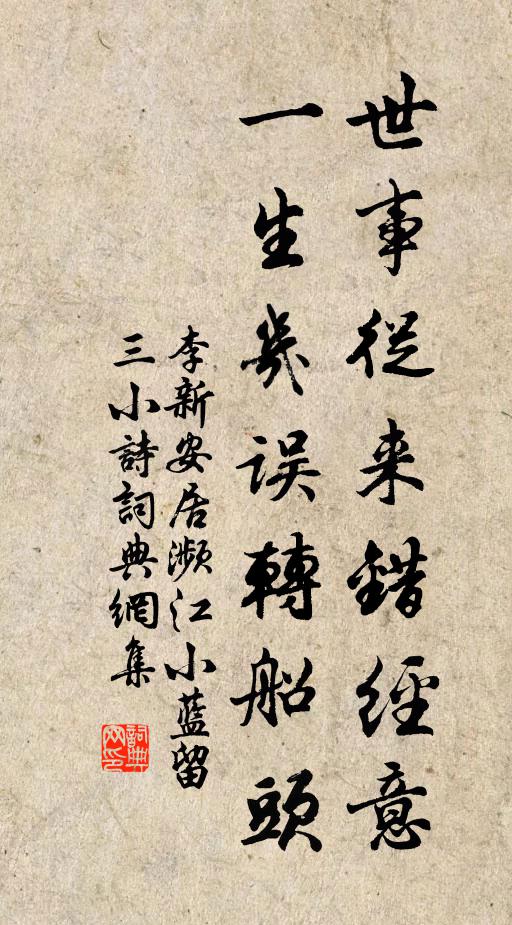 世事從来錯經意
一生幾误轉船頭
李新安居瀕江小藍留
三小詩詞典網集
詞典網印